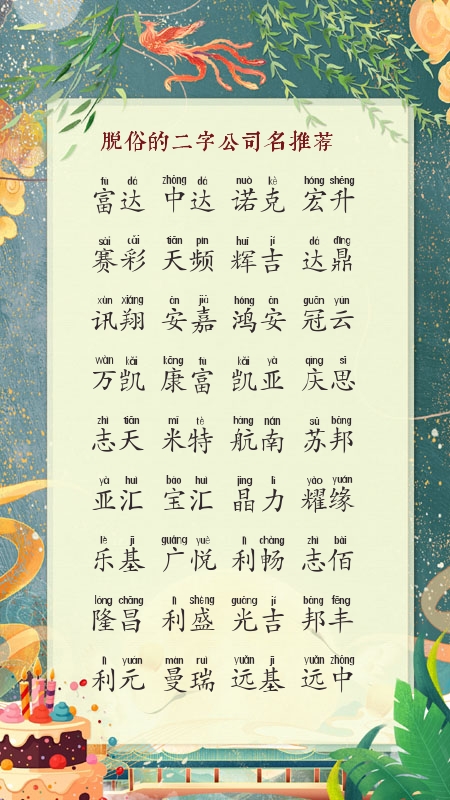 脱俗的二字公司名推荐
fù dá zhōng dá nuò kè hóng shēng
富达 中达 诺克 宏升
sài cǎi tiān pín huī jí dá dǐng
赛彩 天频 辉吉 达鼎
xùn xiáng ān jiā hóng ān guān yún
讯翔 安嘉 鸿安 冠云
wàn kǎi kāng fù kǎi yà qìng sī
万凯 康富 凯亚 庆思
zhì tiān mǐ tè háng nán sū bāng
志天 米特 航南 苏邦
yà huì bǎo huì jīng lì yào yuán
亚汇 宝汇 晶力 耀缘
lè jī guǎng yuè lì chàng zhì bǎi
乐基 广悦 利畅 志佰
lóng chāng lì shèng guāng jí bāng fēng
隆昌 利盛 光吉 邦丰
lì yuán màn ruì yuǎn jī yuǎn zhōng
利元 曼瑞 远基 远中